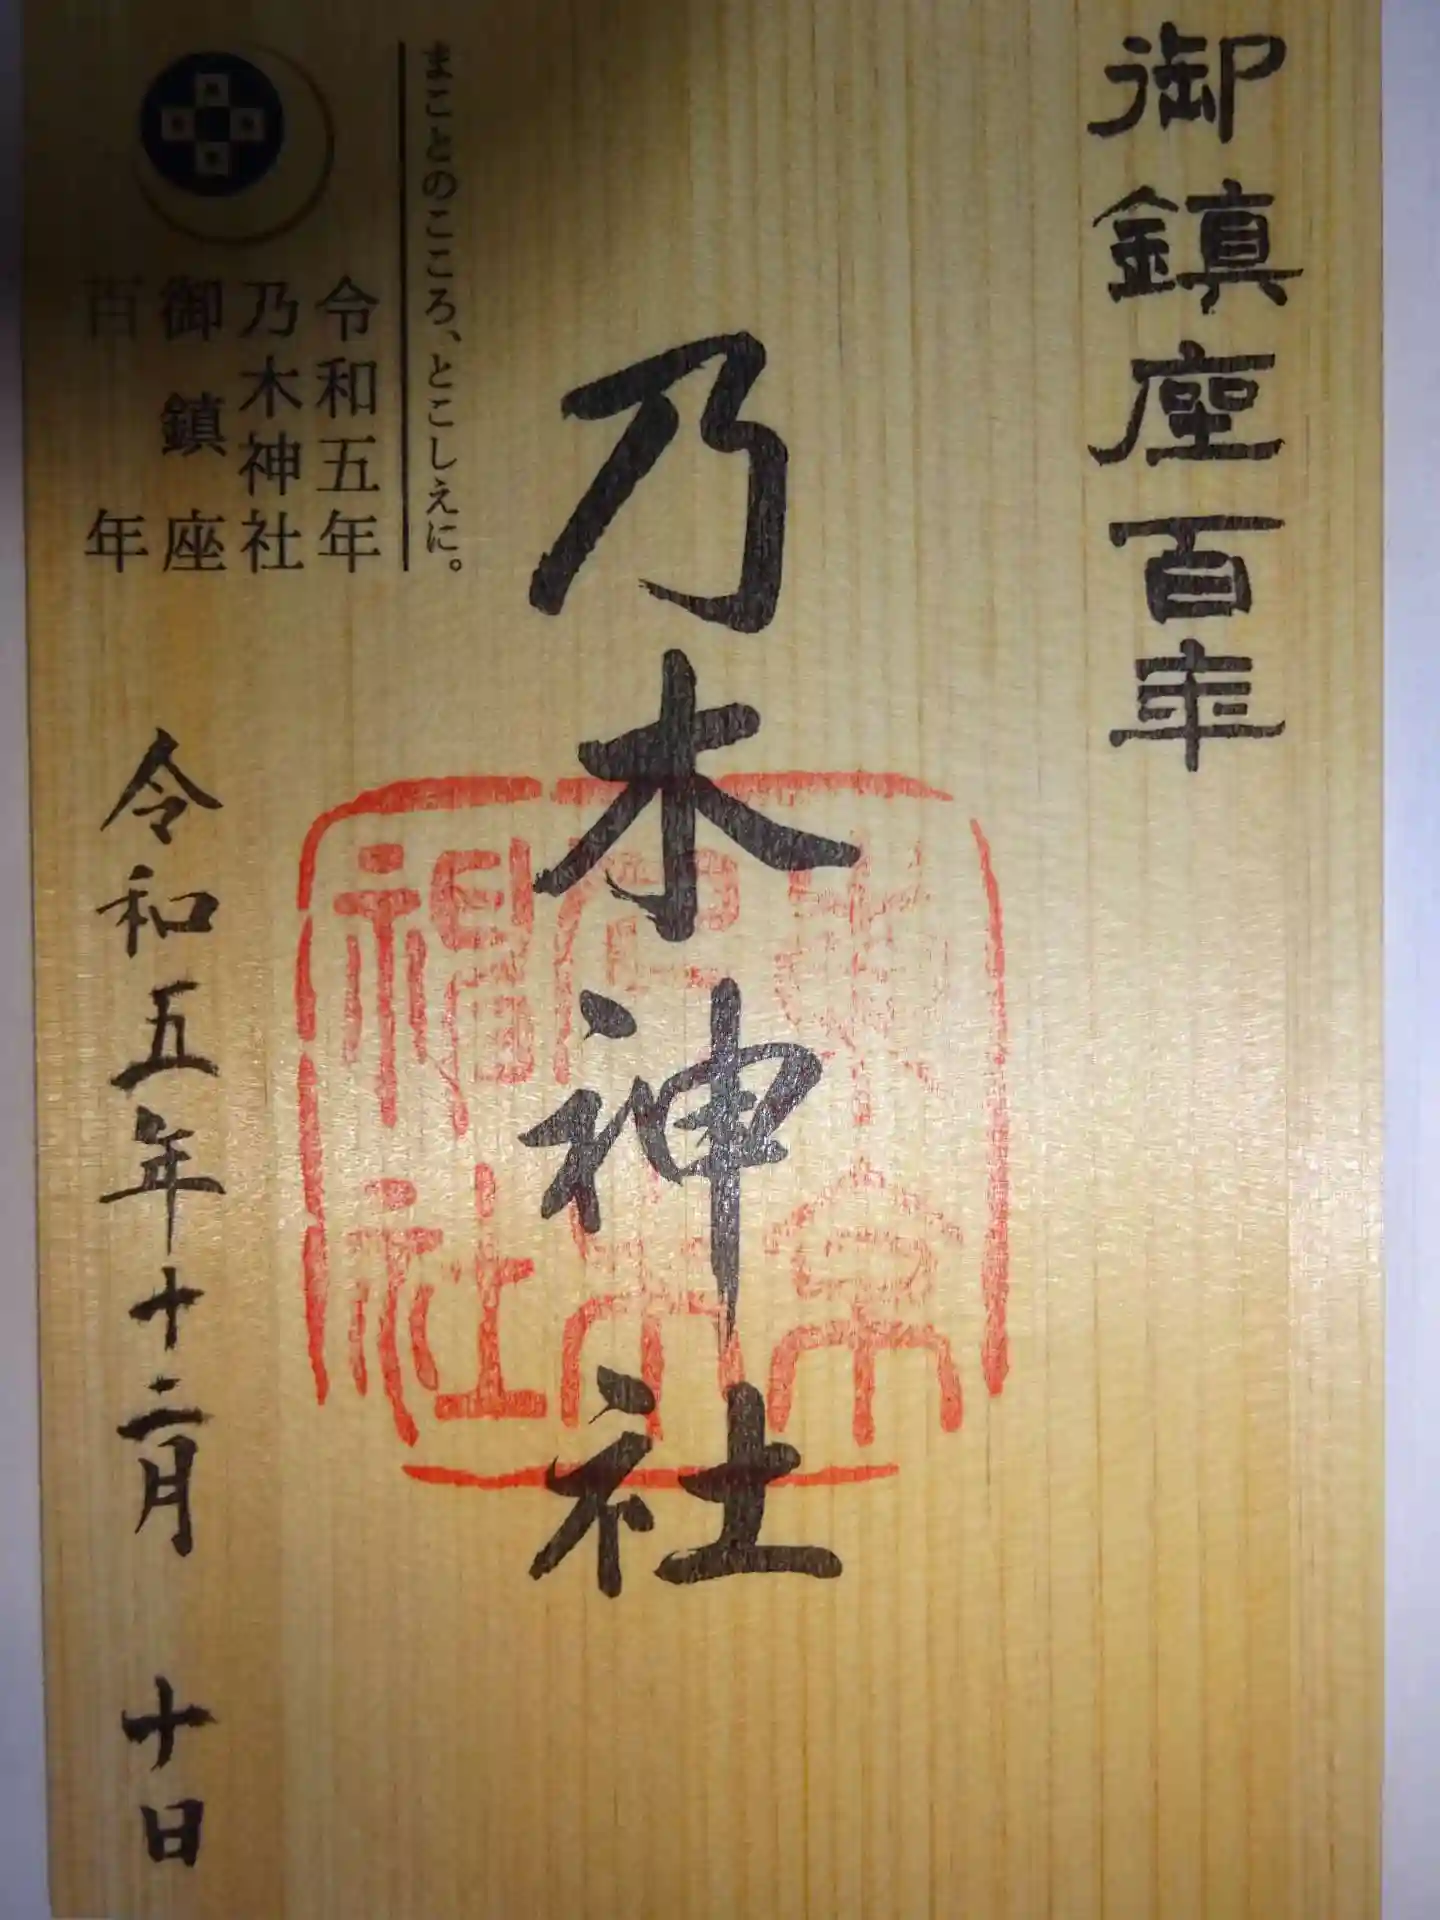 御鎮座百年
乃木神社
東京
乃木
神社
まことのこころ、とこしえに。
令和五年
乃木神社
御鎮座
百年
令和五年十二月 十日